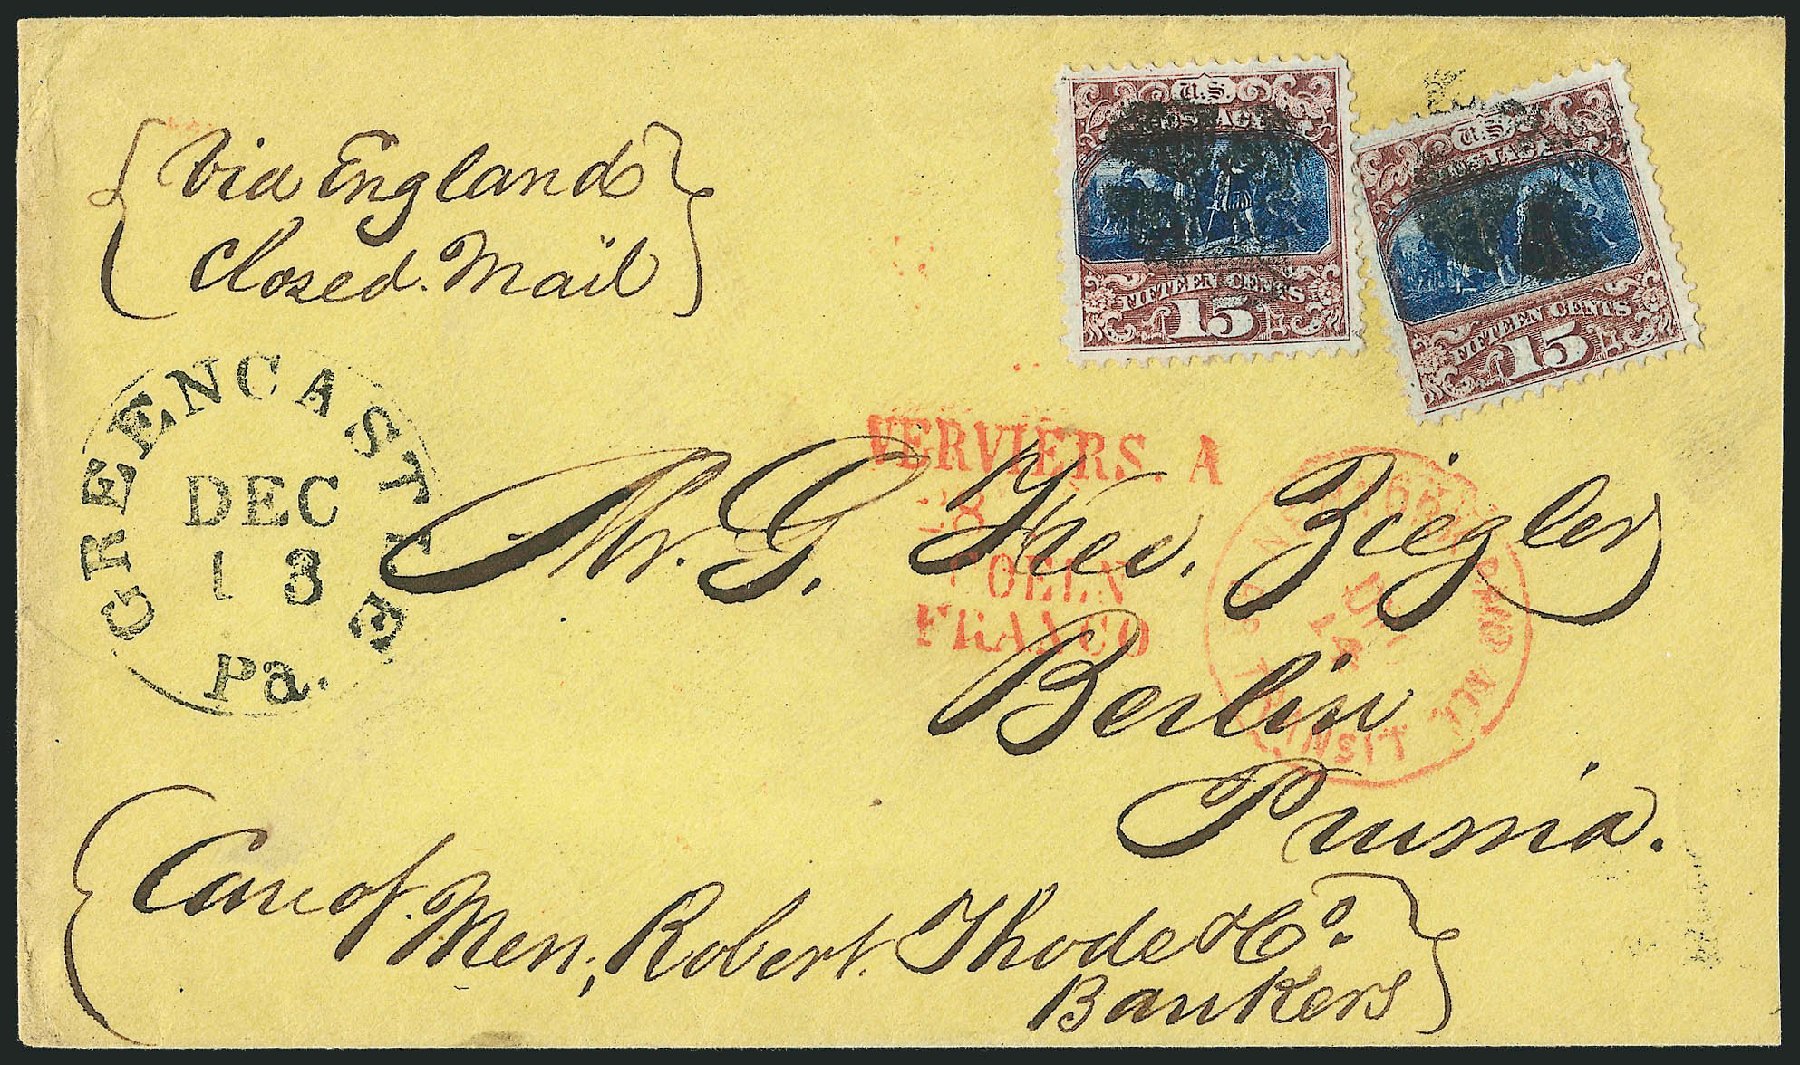 Via England
Closed Mail
U.S.
POSTAGE
FIFTEEN CENTS
15
U.S.
POSTAGE
FIFTEEN CENTS
15
GREENCASTLE
DEC
13
Pa.
VERVIERS. A
28
COELN
FRANCO
DEC
14
TRANSIT
Mr. G. Theo. Ziegler
Berlin
Prussia.
Care of Mess; Robert Thode & Co.
Bankers